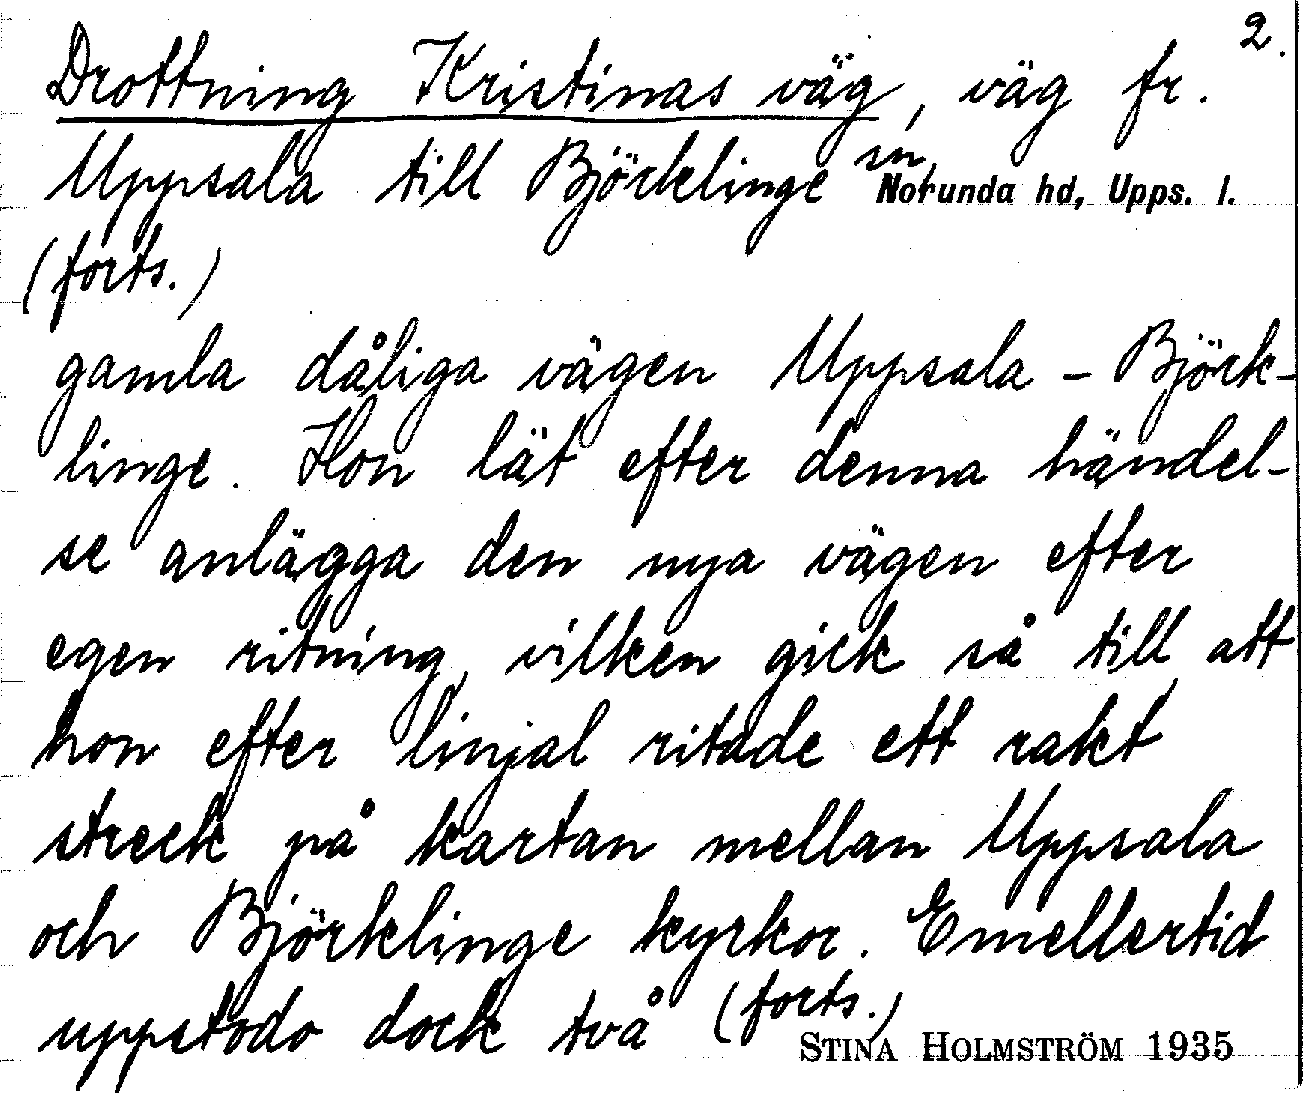 2.
Drottning Kristinas väg, väg fr.
Uppsala till Björklinge sn, Norunda hd, Upps. l.
(forts.)
gamla dåliga vägen Uppsala - Björk-
linge. Hon lät efter denna händel-
se anlägga den nya vägen efter
egen ritning, vilken gick så till att
hon efter linjal ritade ett rakt
streck på kartan mellan Uppsala
och Björklinge kyrkor. Emellertid
uppstodo dock två (forts.)
STINA HOLMSTRÖM 1935